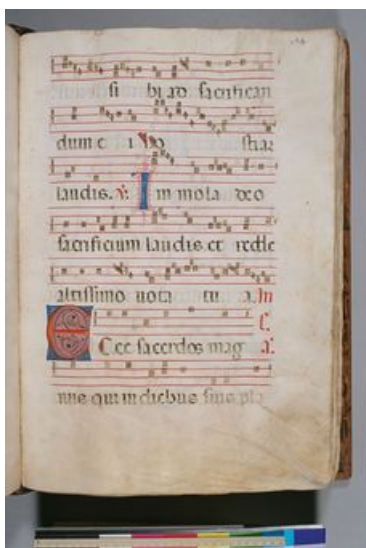 si bi ad sacrifican
dum e i ho stiaz
laudis. ℣. Immola deo
sacrificium laudis et redde
altissimo uota tu a. In
Ecce sacerdos mag
nus qui in diebus suis pla